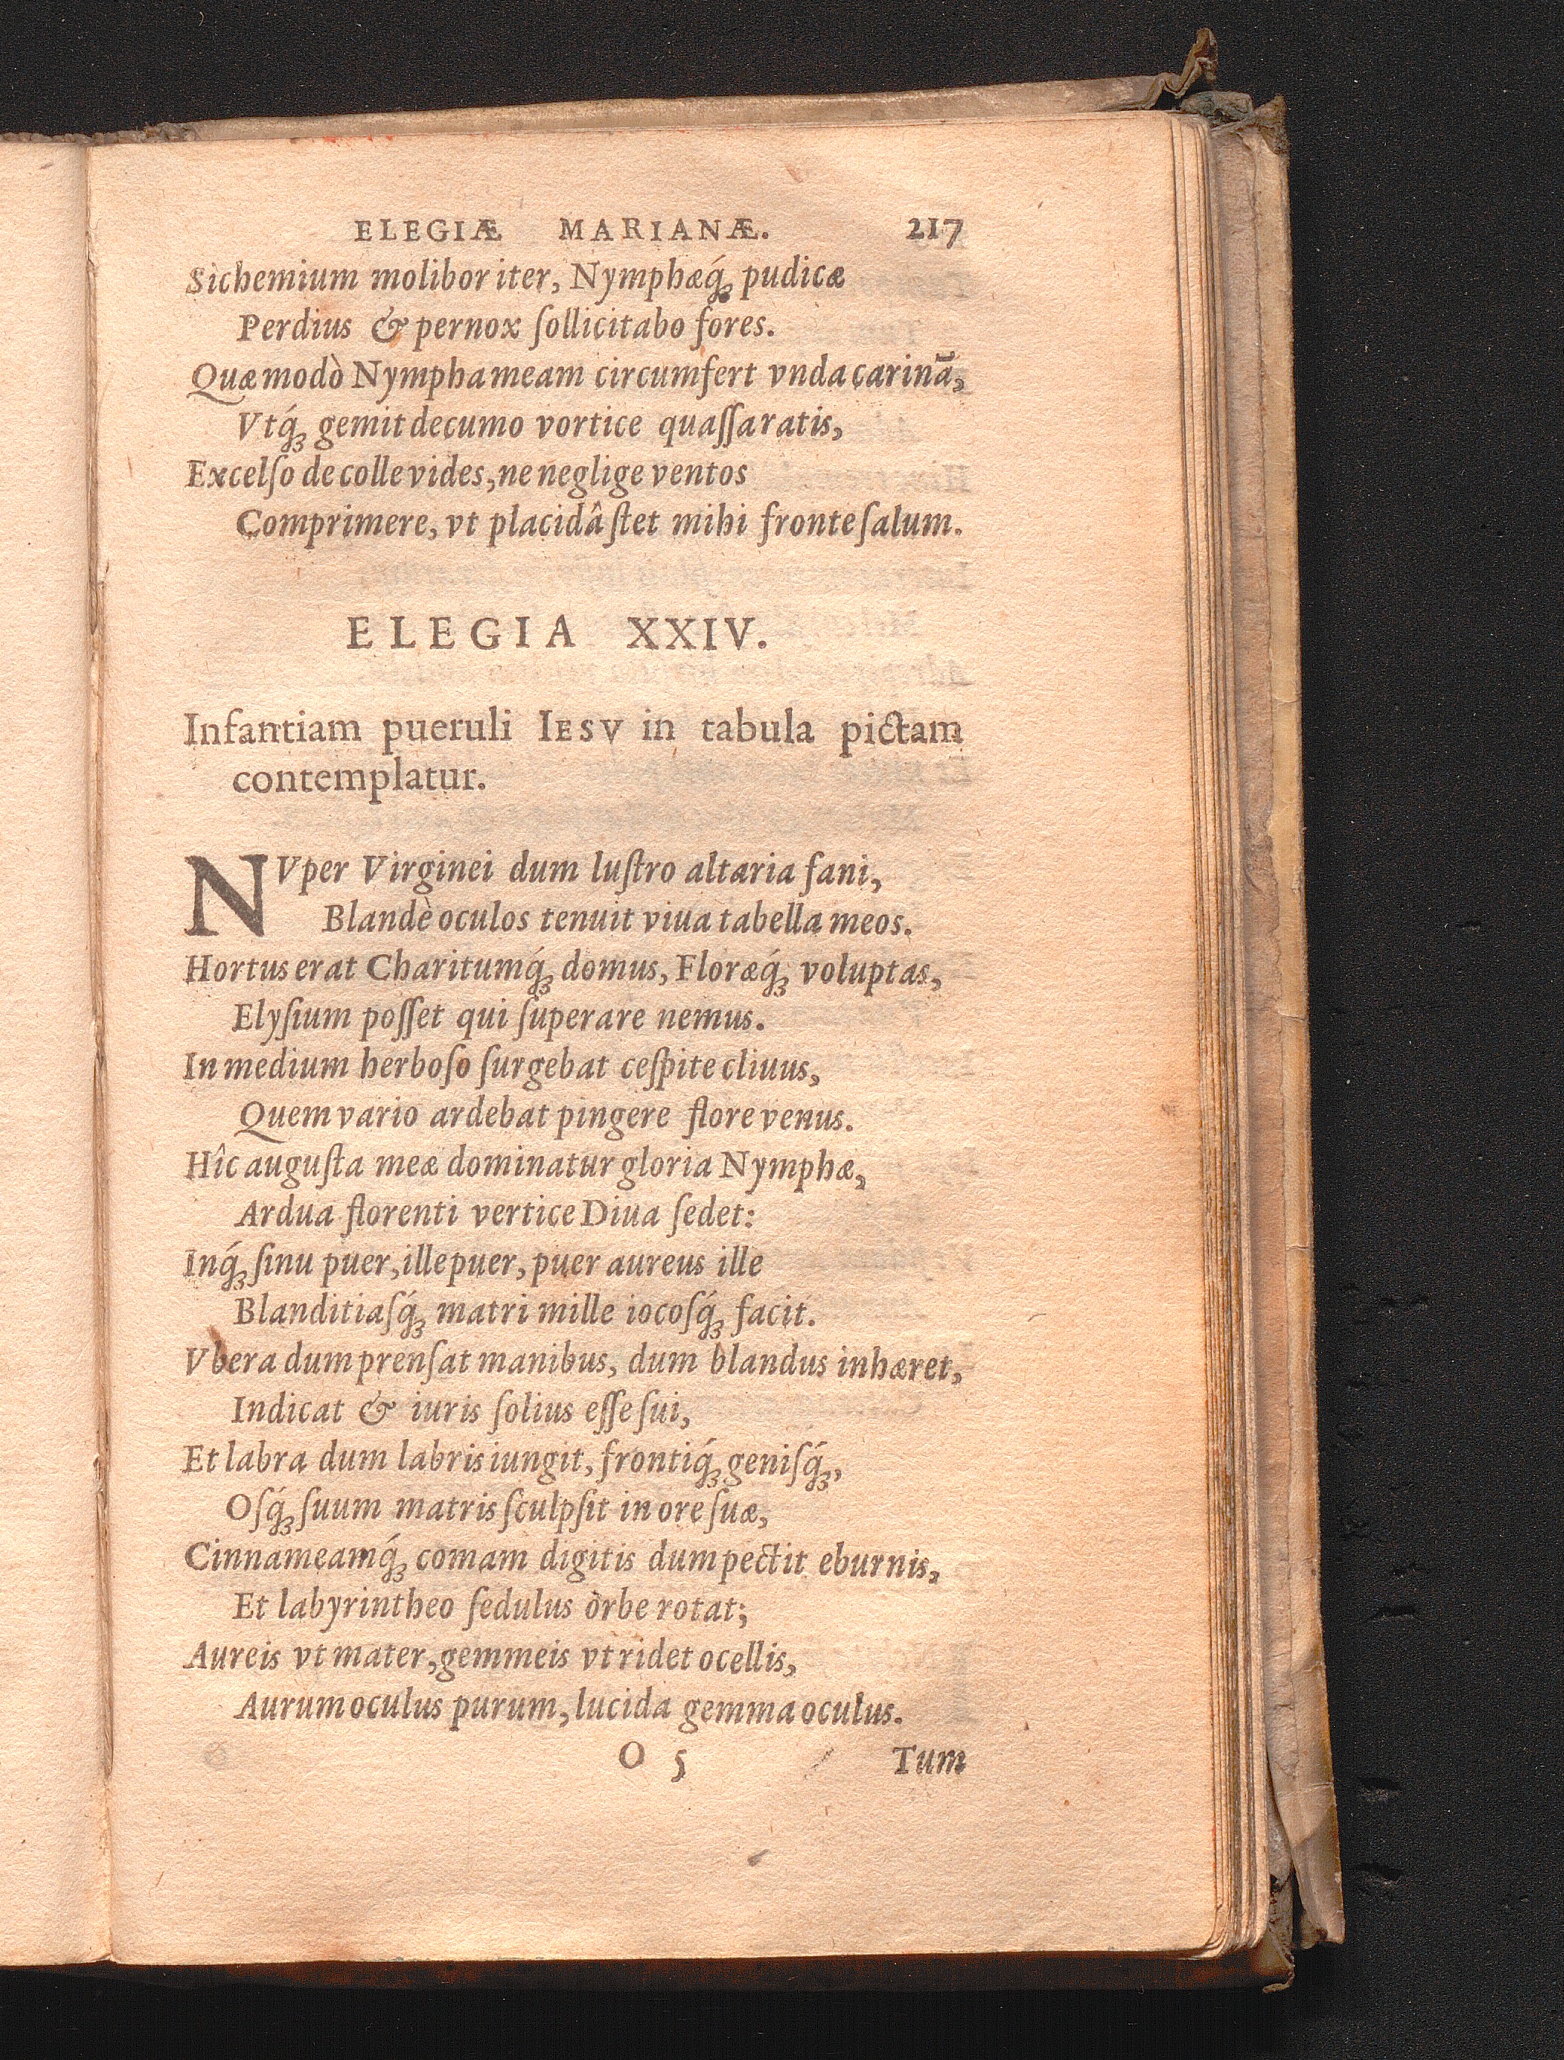 ELEGIÆ MARIANÆ. 217
Sichemium molibor iter, Nymphæq́ꝫ pudicæ
Perdius & pernox ſollicitabo fores.
Quæ modò Nympha meam circumfert vnda carinã,
Vtq́ꝫ gemit decumo vortice quaſſa ratis,
Excelſo de colle vides, ne neglige ventos
Comprimere, vt placidâ ſtet mihi fronte ſalum.
ELEGIA XXIV.
Infantiam pueruli IESV in tabula pictam
contemplatur.
NVper Virginei dum luſtro altaria fani,
Blandè oculos tenuit viua tabella meos.
Hortus erat Charitumq́ꝫ domus, Floræq́ꝫ voluptas,
Elyſium poſſet qui ſuperare nemus.
In medium herboſo ſurgebat ceſpite cliuus,
Quem vario ardebat pingere flore venus.
Hîc auguſta meæ dominatur gloria Nymphæ,
Ardua florenti vertice Diua ſedet:
Inq́ꝫ ſinu puer, ille puer, puer aureus ille
Blanditiaſq́ꝫ matri mille iocoſq́ꝫ facit.
Vbera dum prenſat manibus, dum blandus inhæret,
Indicat & iuris ſolius eſſe ſui,
Et labra dum labris iungit, frontiq́ꝫ geniſq́ꝫ,
Oſq́ꝫ ſuum matris ſculpſit in ore ſuæ,
Cinnameamq́ꝫ comam digitis dum pectit eburnis,
Et labyrintheo ſedulus orbe rotat;
Aureis vt mater, gemmeis vt ridet ocellis,
Aurum oculus purum, lucida gemma oculus.
O 5 Tum